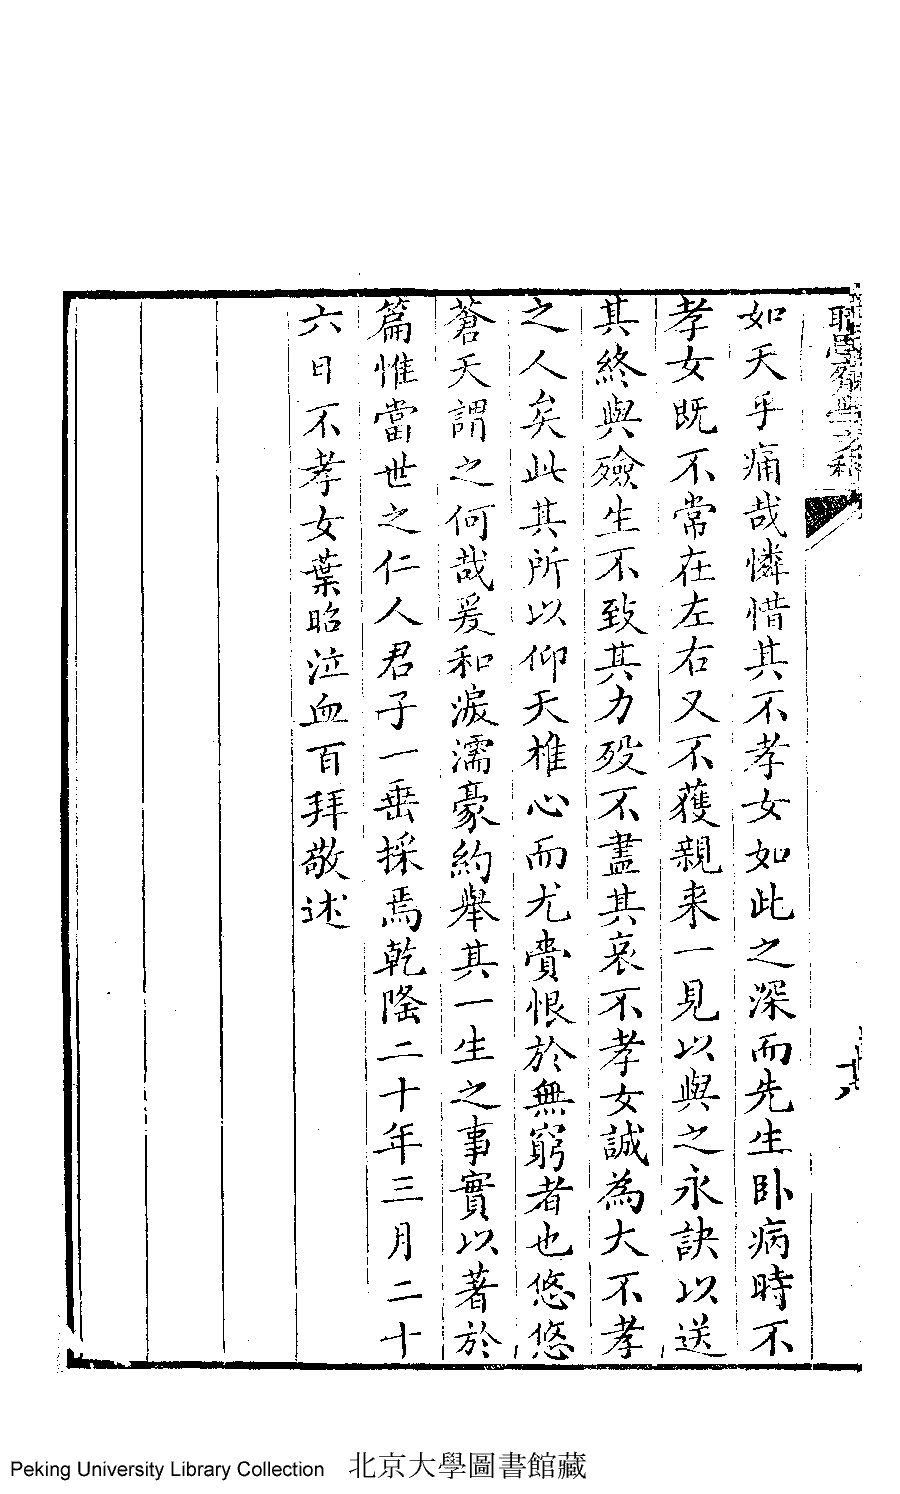 如天乎痛哉憐惜其不孝女如此之深而先生卧病時不
孝女既不常在左右又不獲親来一見以與之永訣以送
其終與殮生不致其力歿不盡其哀不孝女誠為大不孝
之人矣此其所以仰天椎心而尤賫恨於無窮者也悠悠
蒼天謂之何哉爰和淚濡豪約舉其一生之事實以著於
篇惟當世之仁人君子一垂採焉乾隆二十年三月二十
六日不孝女葉昭泣血百拜敬述
Peking University Library Collection 北京大學圖書館藏